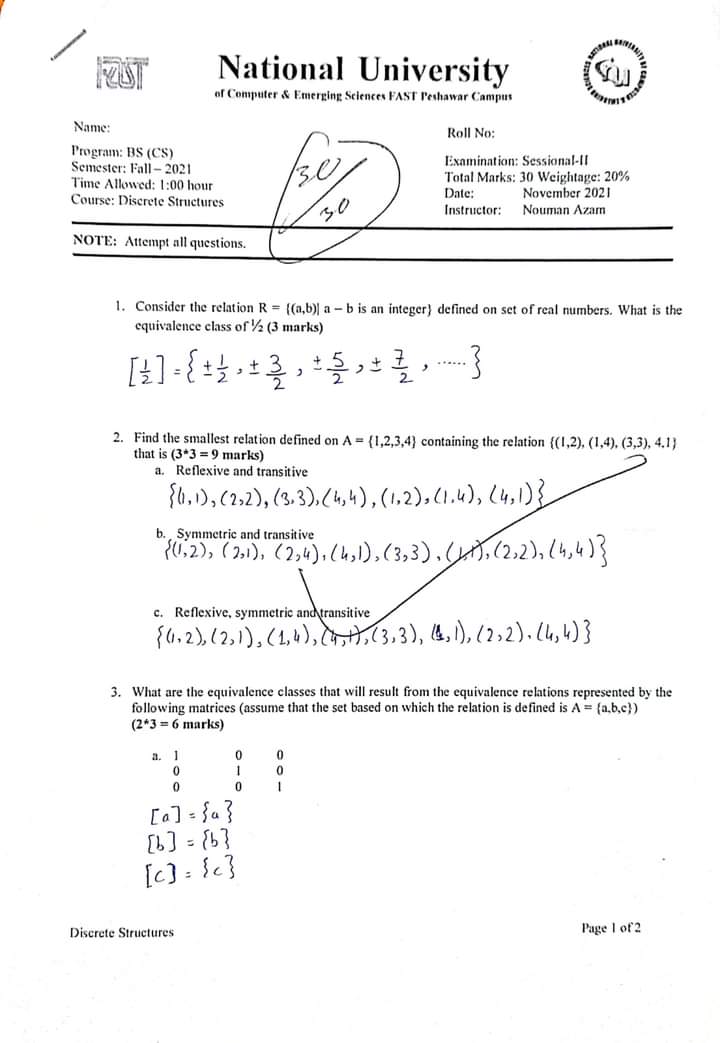 FAST
National University
of Computer & Emerging Sciences FAST Peshawar Campus
Name:
Roll No:
Program: BS (CS)
Semester: Fall – 2021
Time Allowed: 1:00 hour
Course: Discrete Structures
30/30
Examination: Sessional-II
Total Marks: 30 Weightage: 20%
Date: November 2021
Instructor: Nouman Azam
NOTE: Attempt all questions.
1. Consider the relation R = {(a,b)| a – b is an integer} defined on set of real numbers. What is the
equivalence class of ½ (3 marks)
[1/2] = {± 1/2, ± 3/2, ± 5/2, ± 7/2, ......}
2. Find the smallest relation defined on A = {1,2,3,4} containing the relation {(1,2), (1,4), (3,3), 4,1}
that is (3*3 = 9 marks)
a. Reflexive and transitive
{(1,1), (2,2), (3,3), (4,4), (1,2), (1,4), (4,1)}
b. Symmetric and transitive
{(1,2), (2,1), (2,4), (4,1), (3,3), (1,1), (2,2), (4,4)}
c. Reflexive, symmetric and transitive
{(1,2), (2,1), (1,4), (4,1), (3,3), (1,1), (2,2), (4,4)}
3. What are the equivalence classes that will result from the equivalence relations represented by the
following matrices (assume that the set based on which the relation is defined is A = {a,b,c})
(2*3 = 6 marks)
a. 1 0 0
0 1 0
0 0 1
[a] = {a}
[b] = {b}
[c] = {c}
Discrete Structures
Page 1 of 2